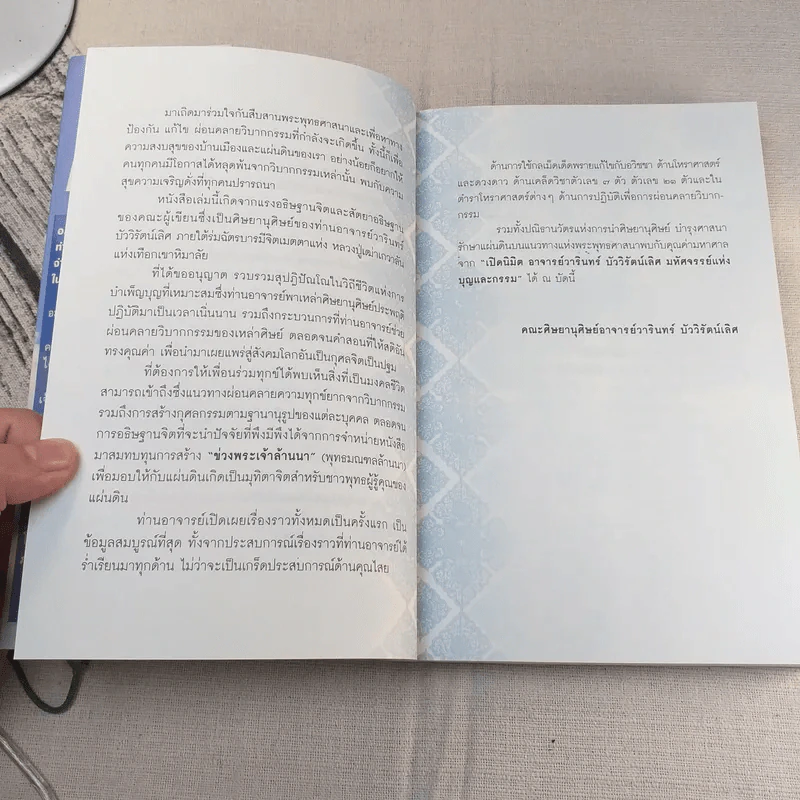 มาเถิดมาร่วมใจกันสืบสานพระพุทธศาสนาและเพื่อหาทาง
ป้องกัน แก้ไข ผ่อนคลายวิบากกรรมที่กำลังจะเกิดขึ้น ทั้งนี้ก็เพื่อ
ความสงบสุขของบ้านเมืองและแผ่นดินของเรา อย่างน้อยก็อยากให้
คนทุกคนมีโอกาสได้หลุดพ้นจากวิบากกรรมเหล่านั้น พบกับความ
สุขความเจริญดั่งที่ทุกคนปรารถนา
หนังสือเล่มนี้เกิดจากแรงอธิษฐานจิตและสัตยาอธิษฐาน
ของคณะผู้เขียนซึ่งเป็นศิษยานุศิษย์ของท่านอาจารย์วารินทร์
บัววิรัตน์เลิศ ภายใต้ร่มฉัตรบารมีจิตเมตตาแห่ง หลวงปู่เฒ่าเกวาลัน
แห่งเทือกเขาหิมาลัย
ที่ได้ขออนุญาต รวบรวมสุปฏิปัณโณในวิถีชีวิตแห่งการ
บำเพ็ญบุญที่เหมาะสมซึ่งท่านอาจารย์พาเหล่าศิษยานุศิษย์ประพฤติ
ปฏิบัติมาเป็นเวลาเนิ่นนาน รวมถึงกระบวนการที่ท่านอาจารย์ช่วย
ผ่อนคลายวิบากกรรมของเหล่าศิษย์ ตลอดจนคำสอนที่ให้สติอัน
ทรงคุณค่า เพื่อนำมาเผยแพร่สู่สังคมโลกอันเป็นกุศลจิตเป็นปฐม
ที่ต้องการให้เพื่อนร่วมทุกข์ได้พบเห็นสิ่งที่เป็นมงคลชีวิต
สามารถเข้าถึงซึ่งแนวทางผ่อนคลายความทุกข์ยากจากวิบากกรรม
รวมถึงการสร้างกุศลกรรมตามฐานานุรูปของแต่ละบุคคล ตลอดจน
การอธิษฐานจิตที่จะนำปัจจัยที่พึงมีพึงได้จากการจำหน่ายหนังสือ
มาสมทบทุนการสร้าง “ข่วงพระเจ้าล้านนา” (พุทธมณฑลล้านนา)
เพื่อมอบให้กับแผ่นดินเกิดเป็นมุทิตาจิตสำหรับชาวพุทธผู้รู้คุณของ
แผ่นดิน
ท่านอาจารย์เปิดเผยเรื่องราวทั้งหมดเป็นครั้งแรก เป็น
ข้อมูลสมบูรณ์ที่สุด ทั้งจากประสบการณ์เรื่องราวที่ท่านอาจารย์ได้
ร่ำเรียนมาทุกด้าน ไม่ว่าจะเป็นเกร็ดประสบการณ์ด้านคุณไสย
ด้านการใช้กลเม็ดเด็ดพรายแก้ไขกับอวิชชา ด้านโหราศาสตร์
และดวงดาว ด้านเคล็ดวิชาตัวเลข ๗ ตัว ตัวเลข ๒๑ ตัวและใน
ตำราโหราศาสตร์ต่างๆ ด้านการปฏิบัติเพื่อการผ่อนคลายวิบาก-
กรรม
รวมทั้งปณิธานวัตรแห่งการนำศิษยานุศิษย์ บำรุงศาสนา
รักษาแผ่นดินบนแนวทางแห่งพระพุทธศาสนาพบกับคุณค่ามหาศาล
จาก “เปิดนิมิต อาจารย์วารินทร์ บัววิรัตน์เลิศ มหัศจรรย์แห่ง
บุญและกรรม” ได้ ณ บัดนี้
คณะศิษยานุศิษย์อาจารย์วารินทร์ บัววิรัตน์เลิศ